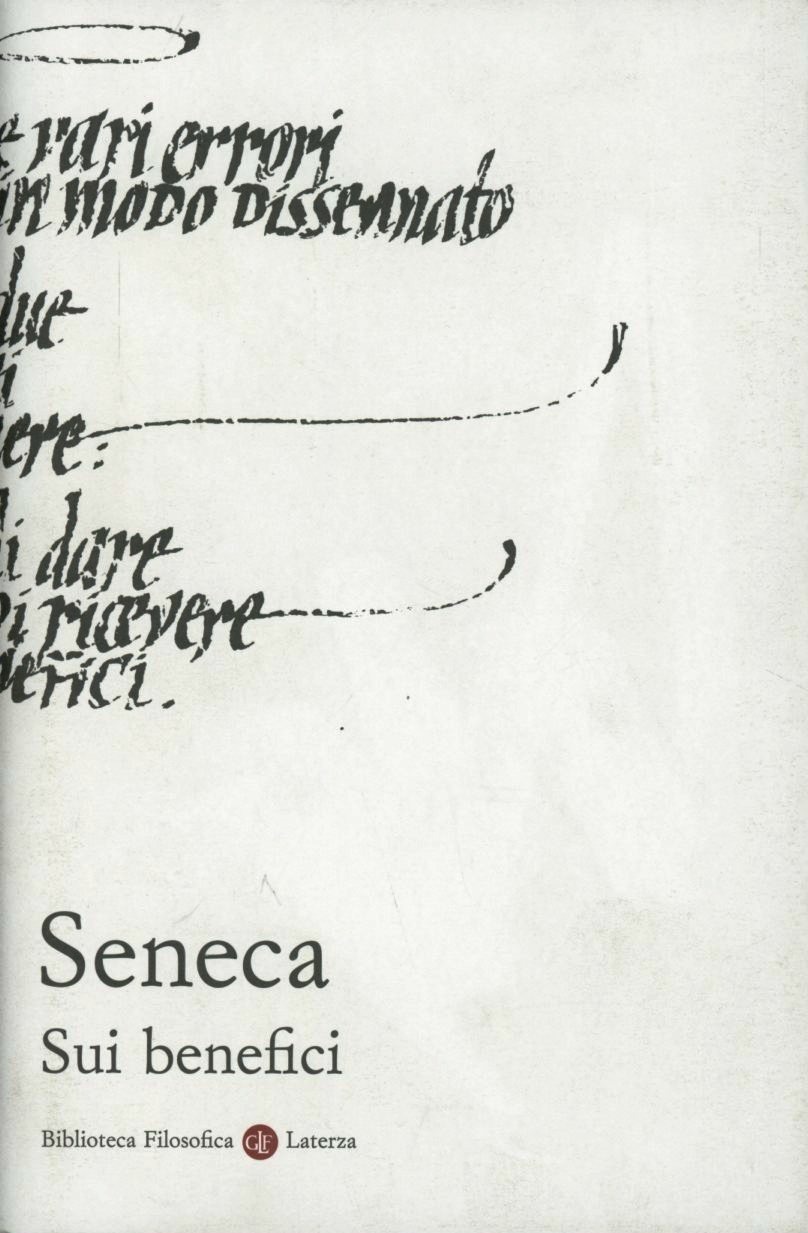 e rari errori
in modo dissennato
due
ere:
di dare
di ricevere
nefici.
Seneca
Sui benefici
Biblioteca Filosofica GLF Laterza